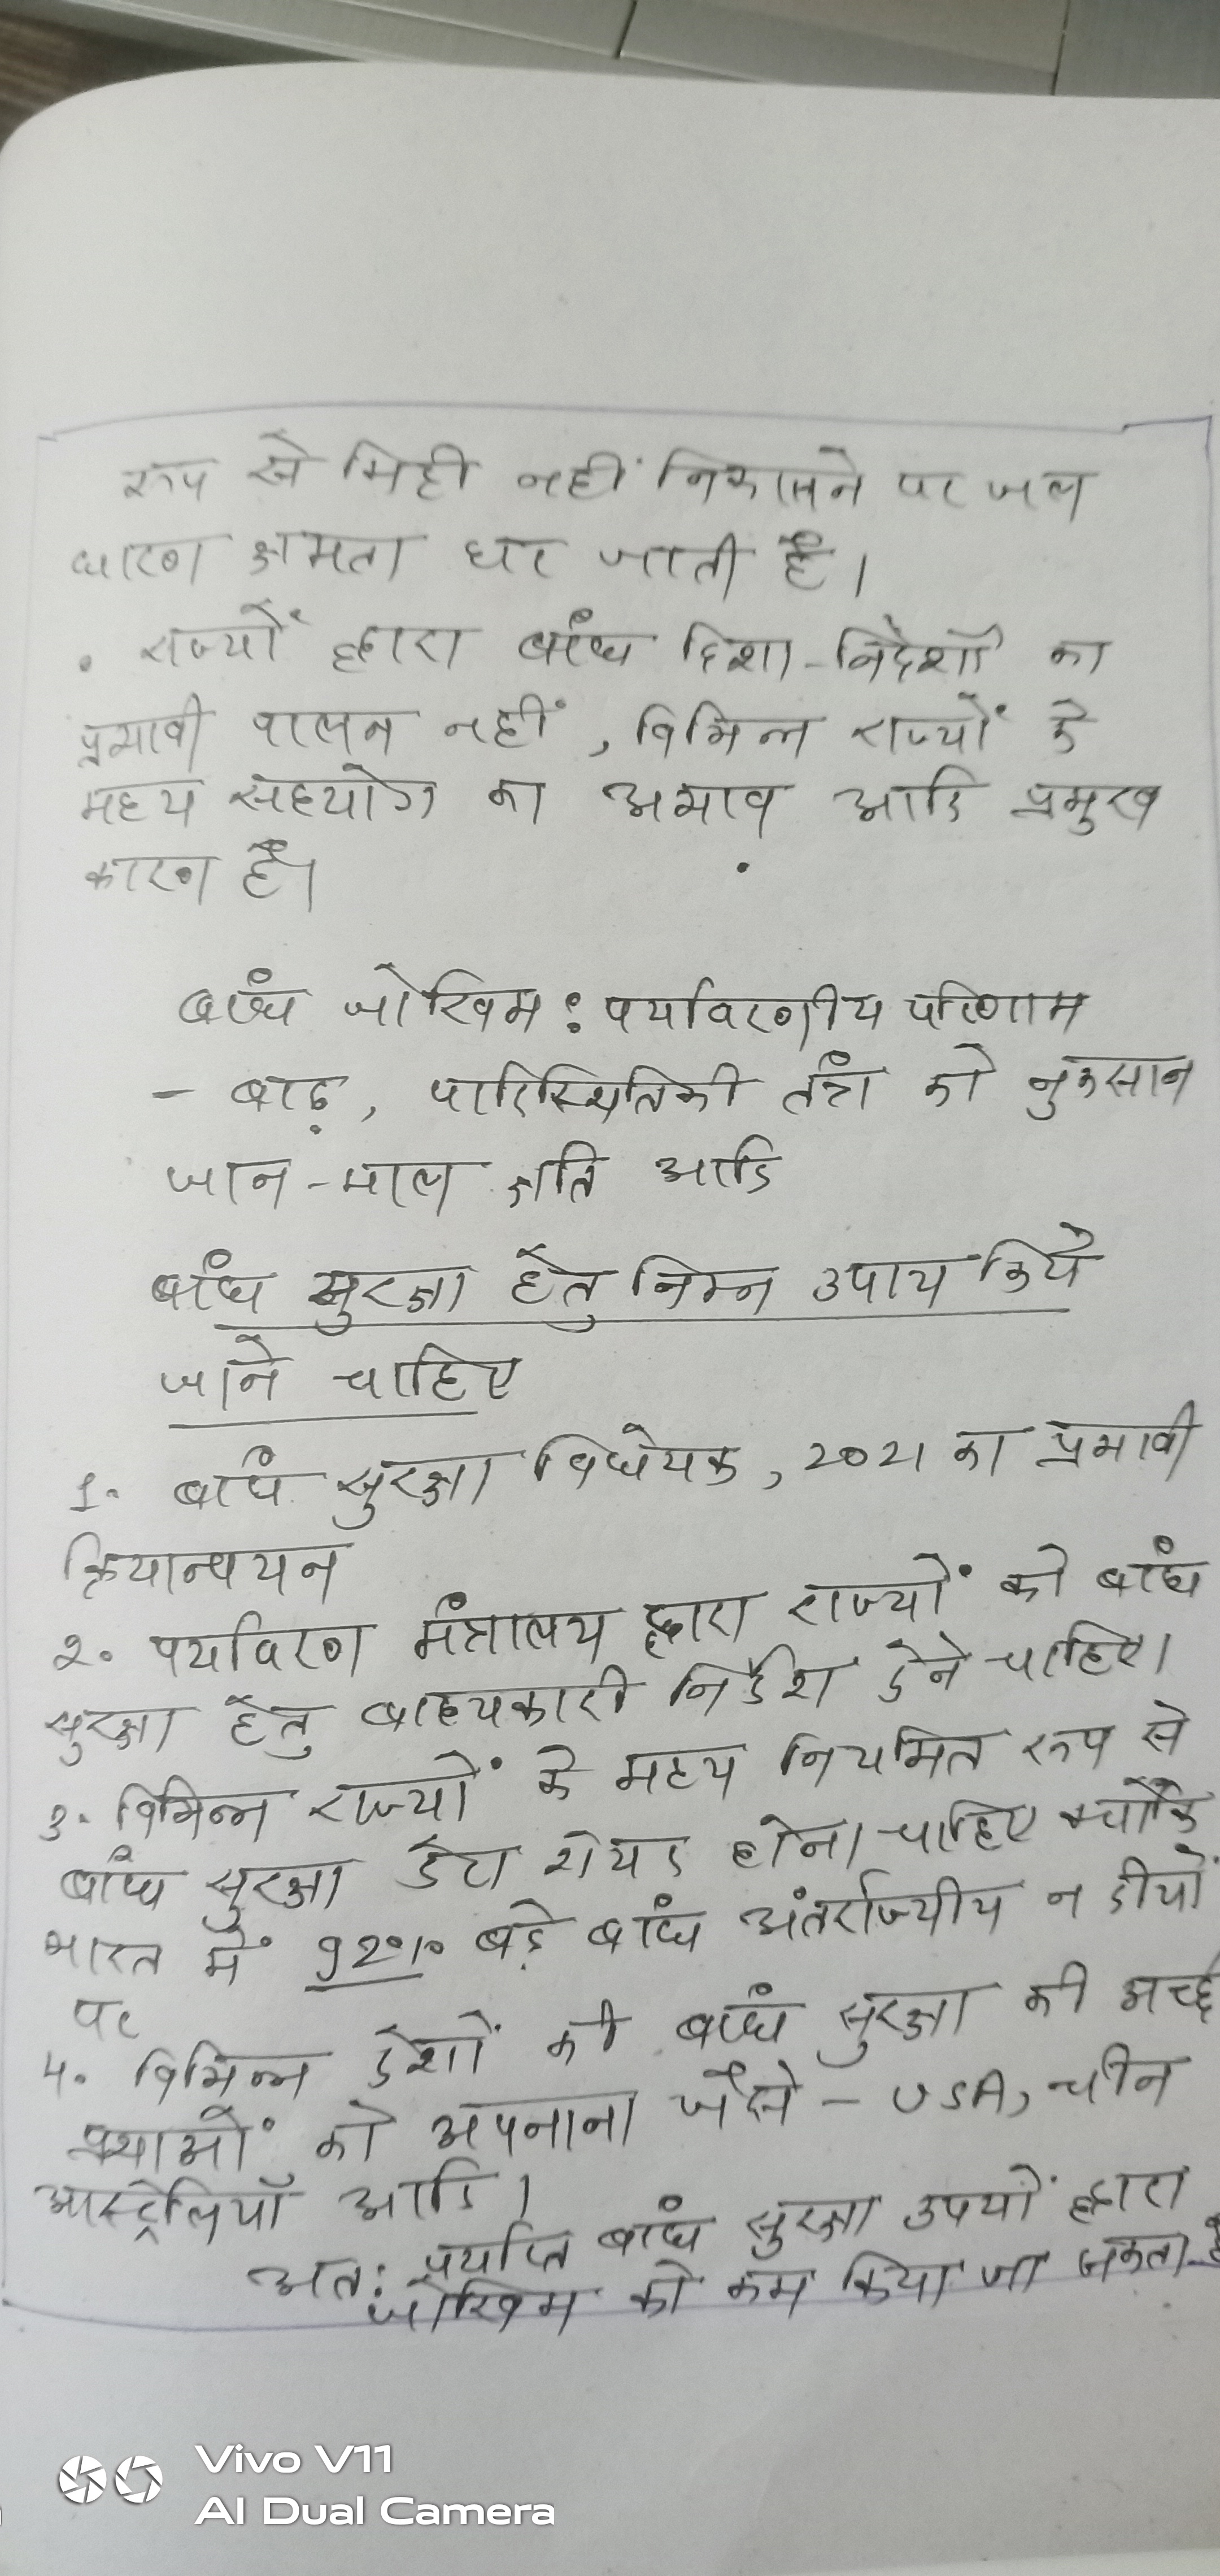 रूप से मिट्टी नहीं निकालने पर जल
धारण क्षमता घट जाती है।
• राज्यों द्वारा बांध दिशा-निर्देशों का
प्रभावी पालन नहीं, विभिन्न राज्यों के
मध्य सहयोग का अभाव आदि प्रमुख
कारण हैं।
बांध जोखिम : पर्यावरणीय परिणाम
- बाढ़, पारिस्थितिकी तंत्र को नुकसान
जान-माल क्षति आदि
बांध सुरक्षा हेतु निम्न उपाय किये
जाने चाहिए
1. बांध सुरक्षा विधेयक, 2021 का प्रभावी
क्रियान्वयन
2. पर्यावरण मंत्रालय द्वारा राज्यों को बांध
सुरक्षा हेतु बाध्यकारी निर्देश देने चाहिए।
3. विभिन्न राज्यों के मध्य नियमित रूप से
बांध सुरक्षा डेटा शेयर होना चाहिए क्योंकि
भारत में 92% बड़े बांध अंतर्राज्यीय नदीयों
पर
4. विभिन्न देशों की बांध सुरक्षा की अच्छी
प्रथाओं को अपनाना जैसे - USA, चीन
आस्ट्रेलियाँ आदि।
अत: पर्याप्त बांध सुरक्षा उपयों द्वारा
जोखिम को कम किया जा सकता है
Vivo V11
AI Dual Camera